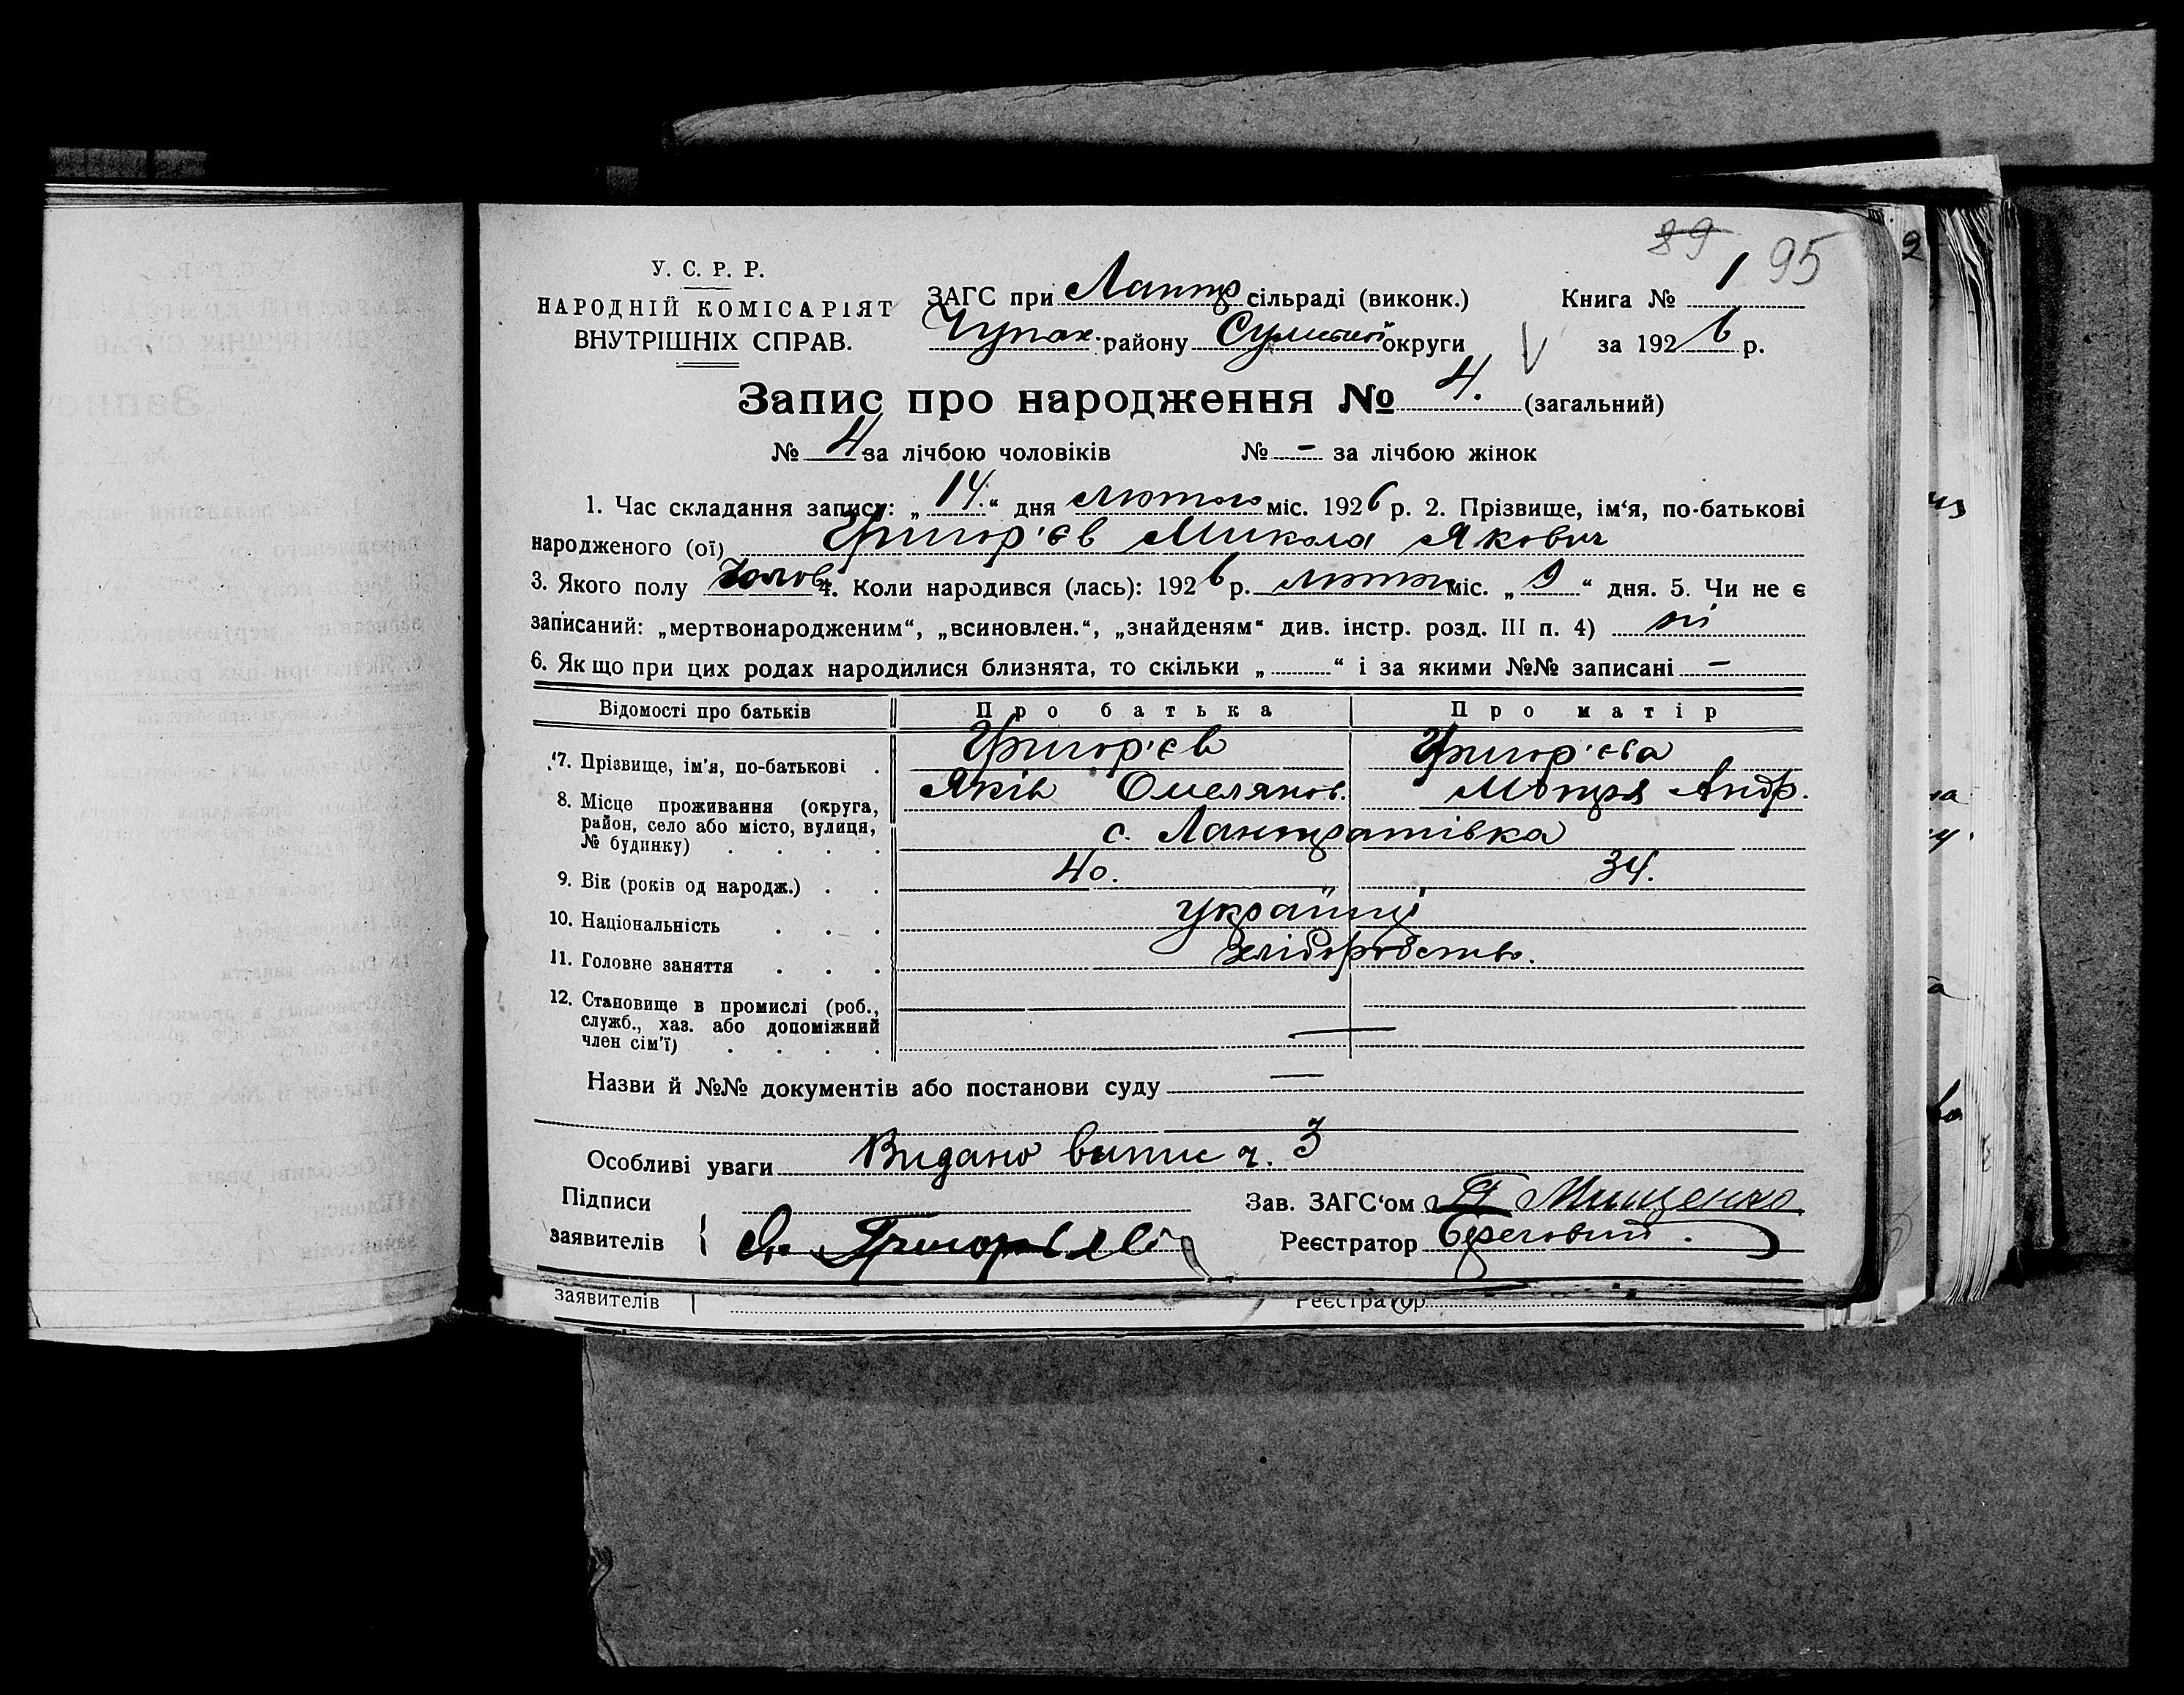 89 95
У. С. Р. Р.
НАРОДНІЙ КОМІСАРІЯТ
ВНУТРІШНІХ СПРАВ.
ЗАГС при Лантр сільраді (виконк.) Книга № 1
Чупах. району Сумської округи за 1926 р.
Запис про народження № 4. (загальний)
№ 4 за лічбою чоловіків № - за лічбою жінок
1. Час складання запису: „14.“ дня лютого міс. 1926 р. 2. Прізвище, ім'я, по-батькові
народженого (ої) Григор'єв Микола Якович
3. Якого полу Чолов. 4. Коли народився (лась): 1926 р. лютого міс. „9“ дня. 5. Чи не є
записаний: „мертвонародженим“, „всиновлен.“, „знайденям“ див. інстр. розд. III п. 4) ні
6. Якщо при цих родах народилися близнята, то скільки „ “ і за якими №№ записані -
Відомості про батьків Про батька Про матір
7. Прізвище, ім'я, по-батькові . Григор'єв Григор'єва
Яків Омелянов. Мотря Андр.
8. Місце проживання (округа,
район, село або місто, вулиця,
№ будинку) . . . . с. Лантратівка
9. Вік (років од народж.) . . 40. 34.
10. Національність . . . українці
11. Головне заняття . . . хліборобство.
12. Становище в промислі (роб.,
служб., хаз. або допоміжний
член сім'ї) . . . . —
Назви й №№ документів або постанови суду —
Особливі уваги Видано випис ч. 3
Підписи Зав. ЗАГС'ом П Мищенко
заявителів { Як Григорьев Реєстратор Береговий.
заявителів Реєстратор